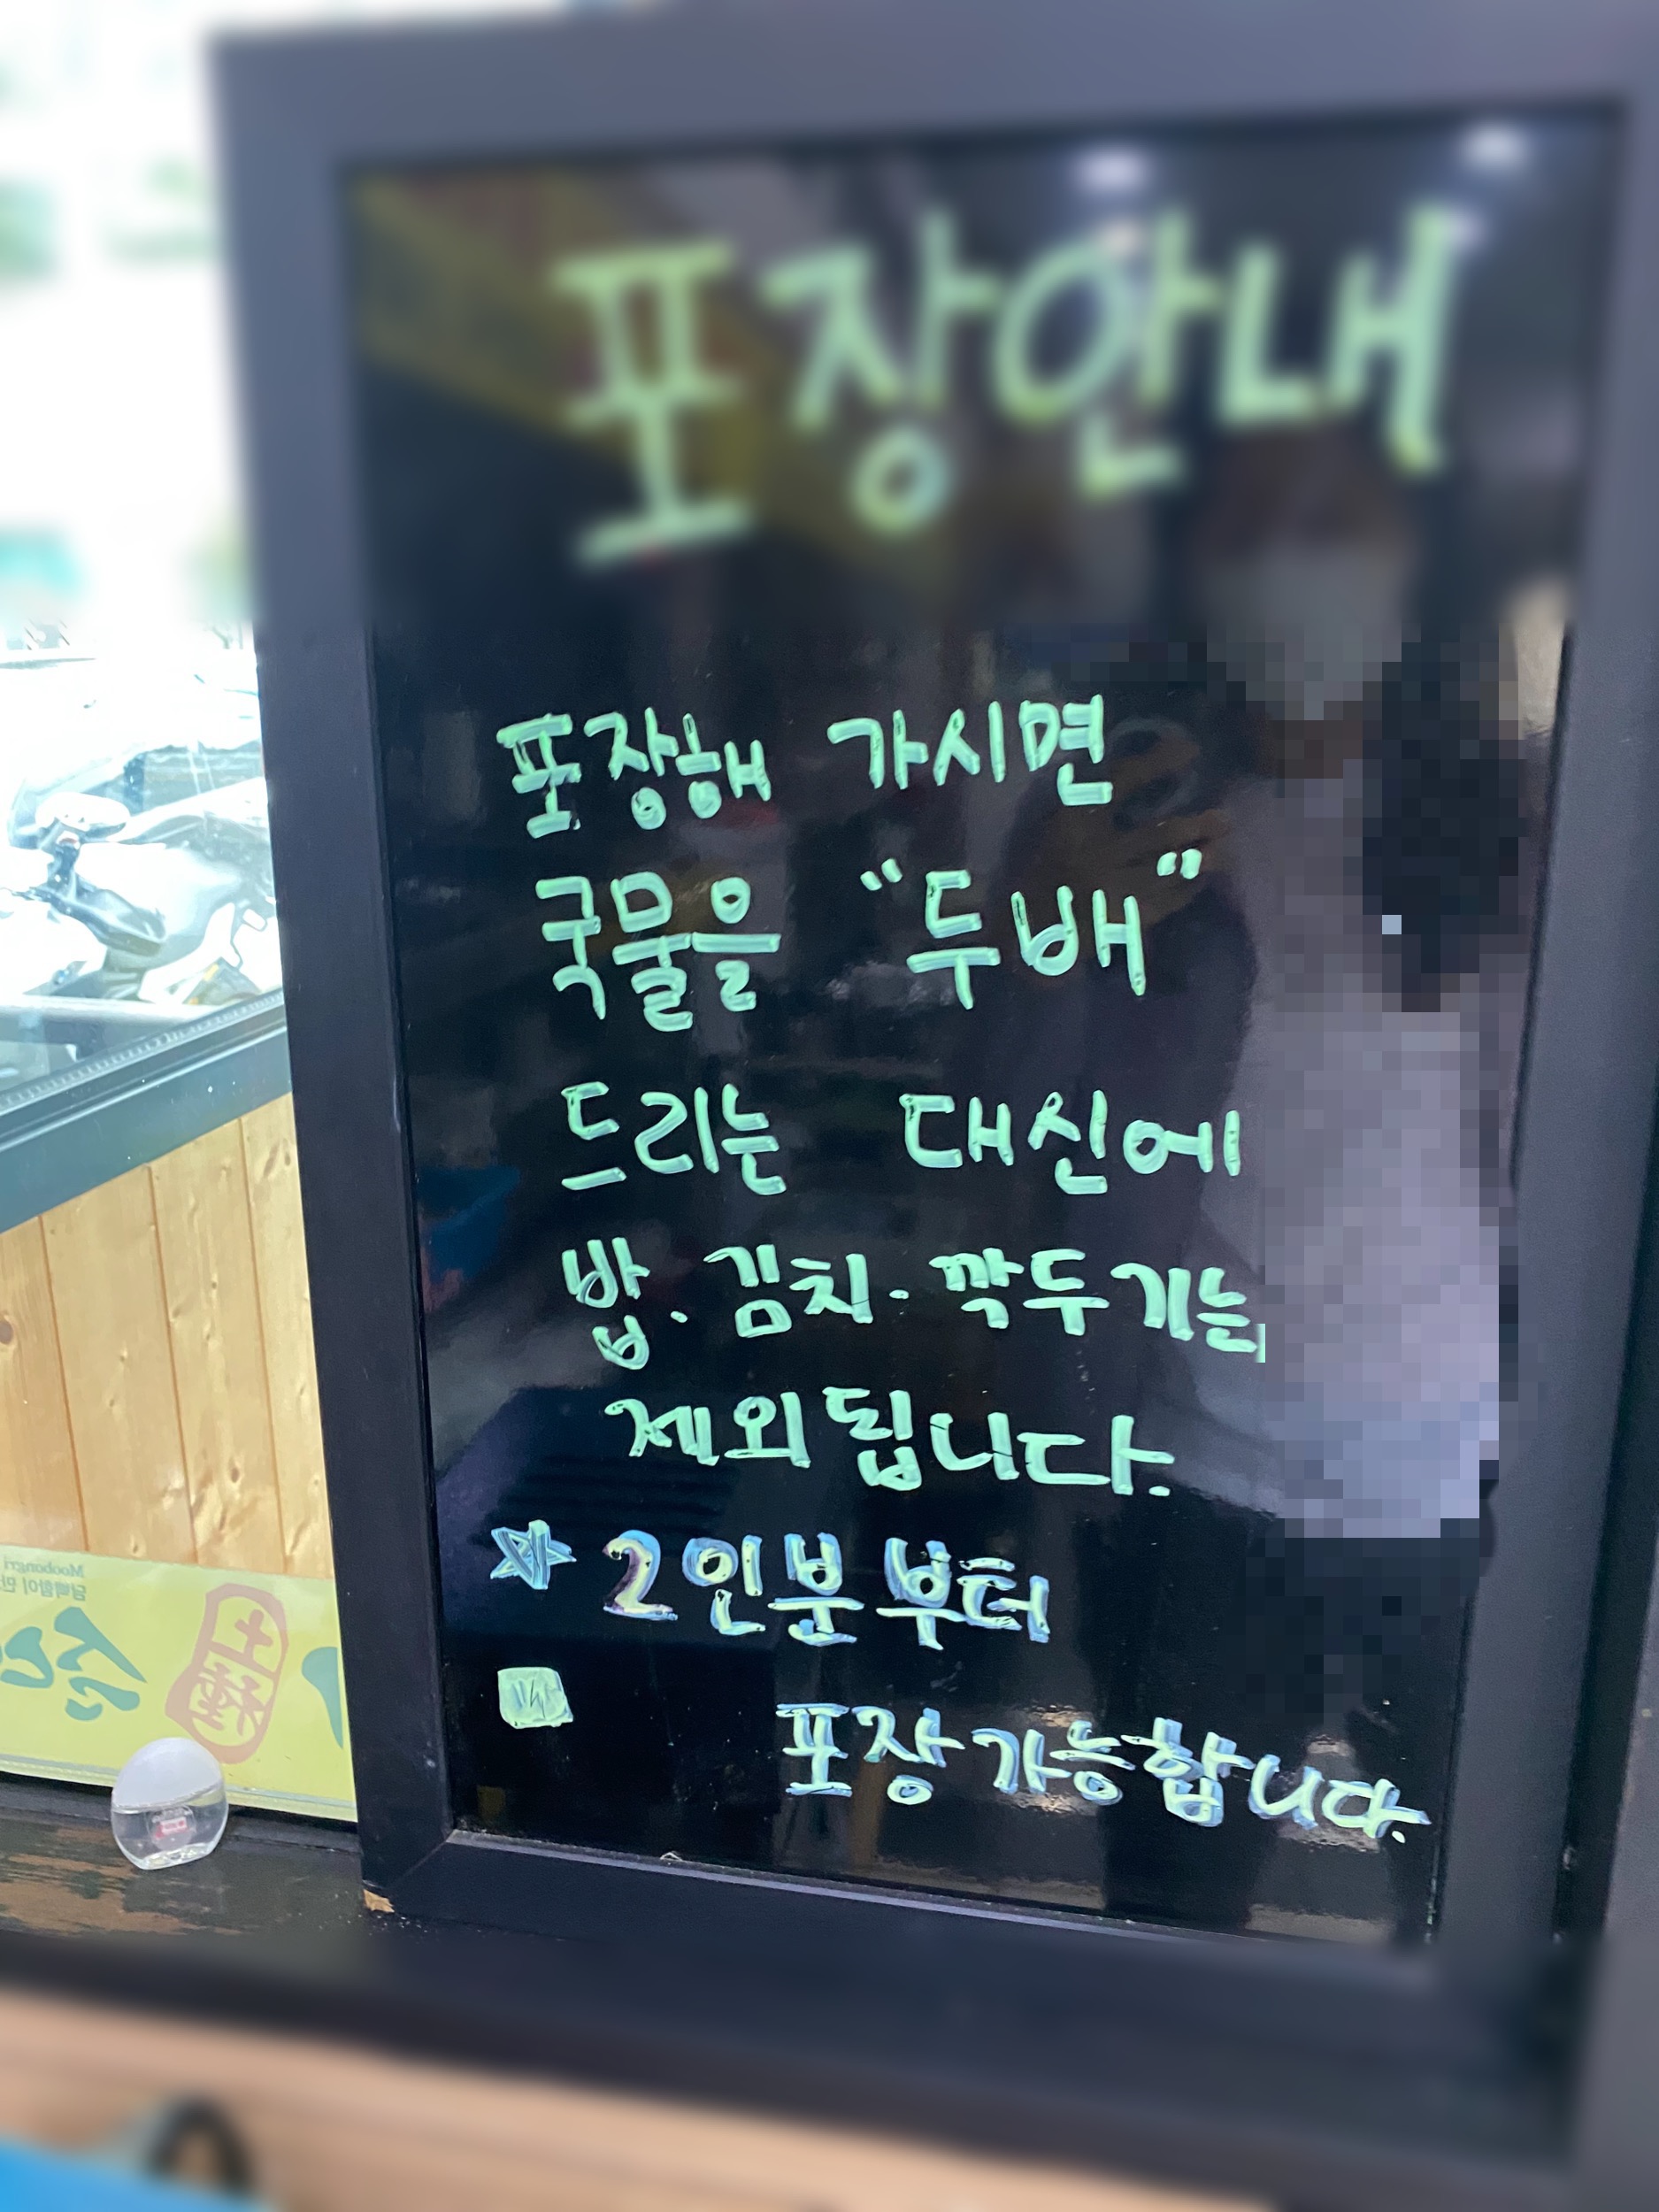 포장안내
포장해 가시면
국물을 "두배"
드리는 대신에
밥·김치·깍두기는
제외됩니다.
☆ 2인분부터
포장가능합니다.
Moobongri